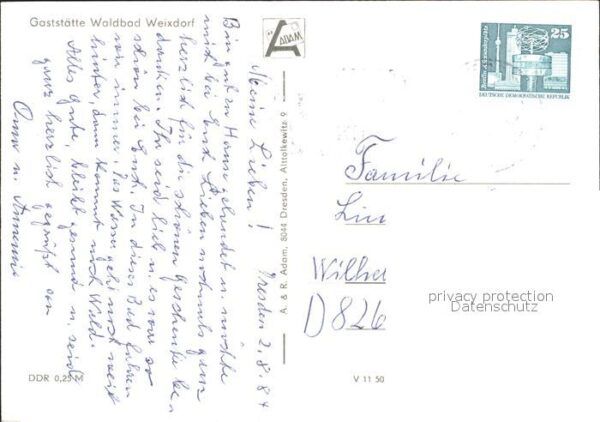 Gaststätte Waldbad Weixdorf
ADAM
25
DEUTSCHE DEMOKRATISCHE REPUBLIK
Dresden 2.8.84
Meine Lieben!
Bin gut zu Haus gelandet u. möchte
mich bei Euch Lieben nochmals ganz
herzlich für die schönen Geschenke be-
danken. Ihr seid lieb u. es war so
schön bei Euch. In dieses Bad fahren
wir immer. Das Wasser geht noch weit
hinter, dann kommt noch Wald.
Alles Gute, bleibt gesund u. seid
ganz herzlich gegrüßt von
Oma u.
A. & R. Adam, 8044 Dresden, Alttolkewitz 9
Familie
Lin
Wilhe
D 826
privacy protection
Datenschutz
DDR 0,25 M
V 11 50